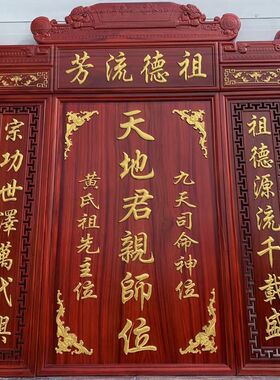 祖德流芳
祖德源流千載盛
九天司命神位
天地君親師位
黃氏祖先主位
宗功世澤萬代興